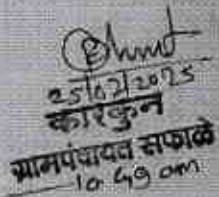 25/02/2025
कारकुन
ग्रामपंचायत सफाळे
10 49 am